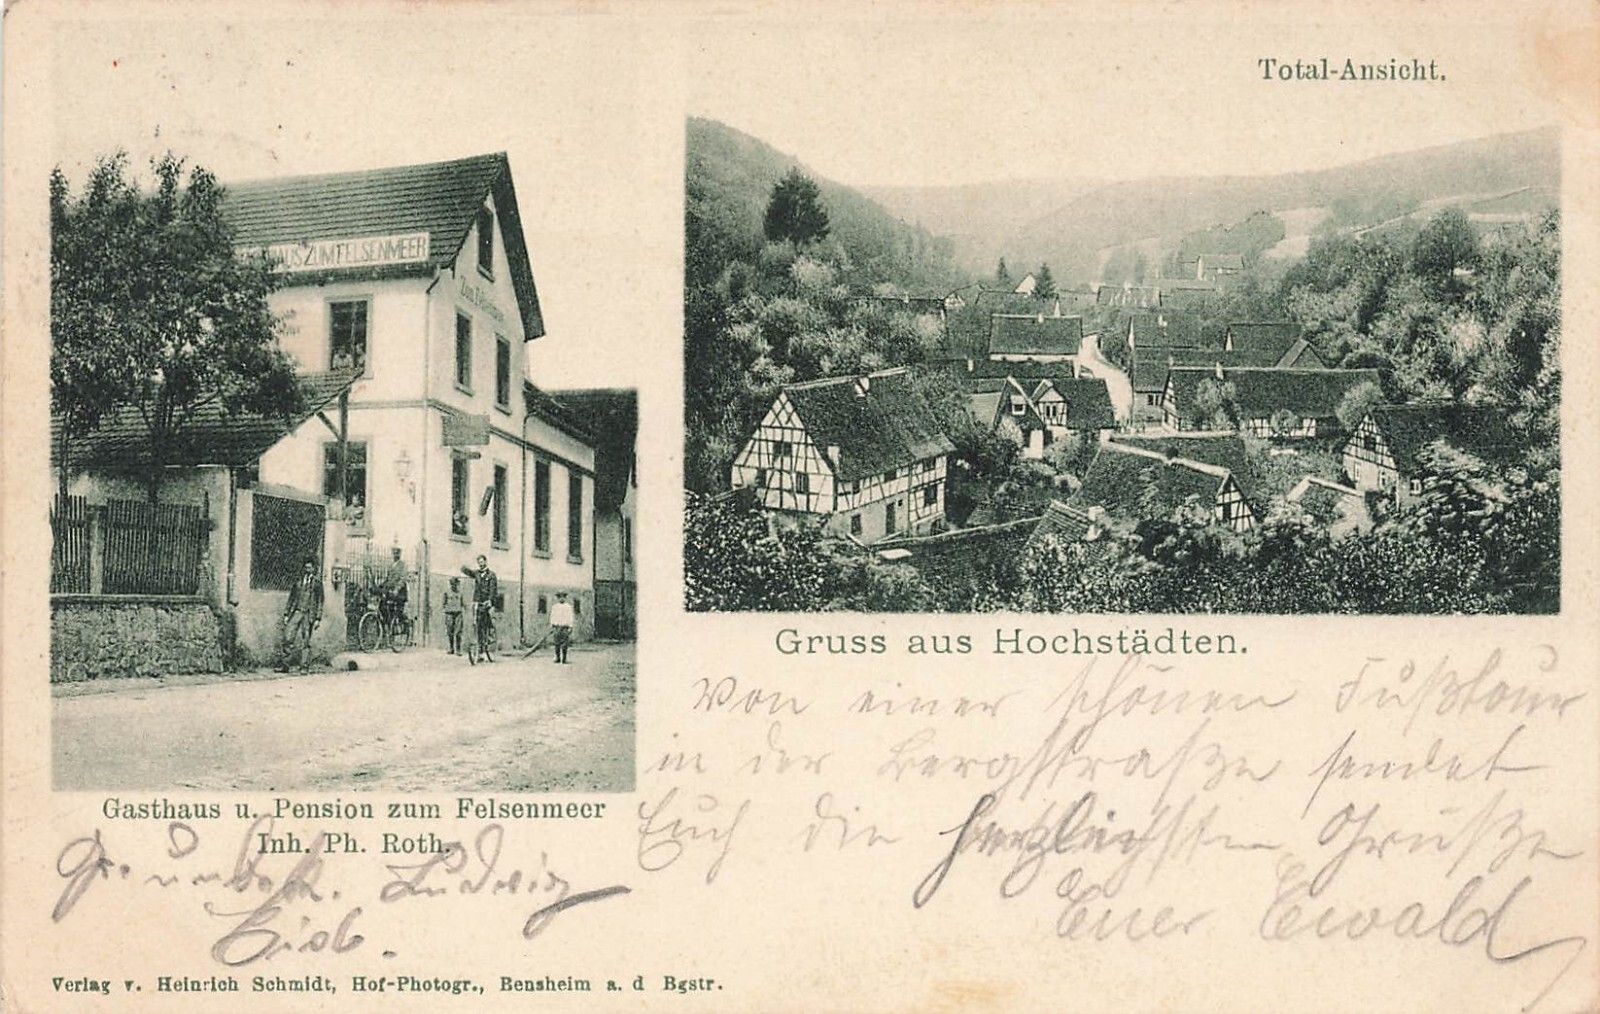 Total-Ansicht.
HAUS ZUM FELSENMEER
Zum Felsenmeer
Gruss aus Hochstädten.
Von einer schönen Fußtour
in der Bergstraße sendet
Euch die herzlichsten Grüße
Euer Ewald
Gasthaus u. Pension zum Felsenmeer
Inh. Ph. Roth.
Ludwig
Verlag v. Heinrich Schmidt, Hof-Photogr., Bensheim a. d Bgstr.